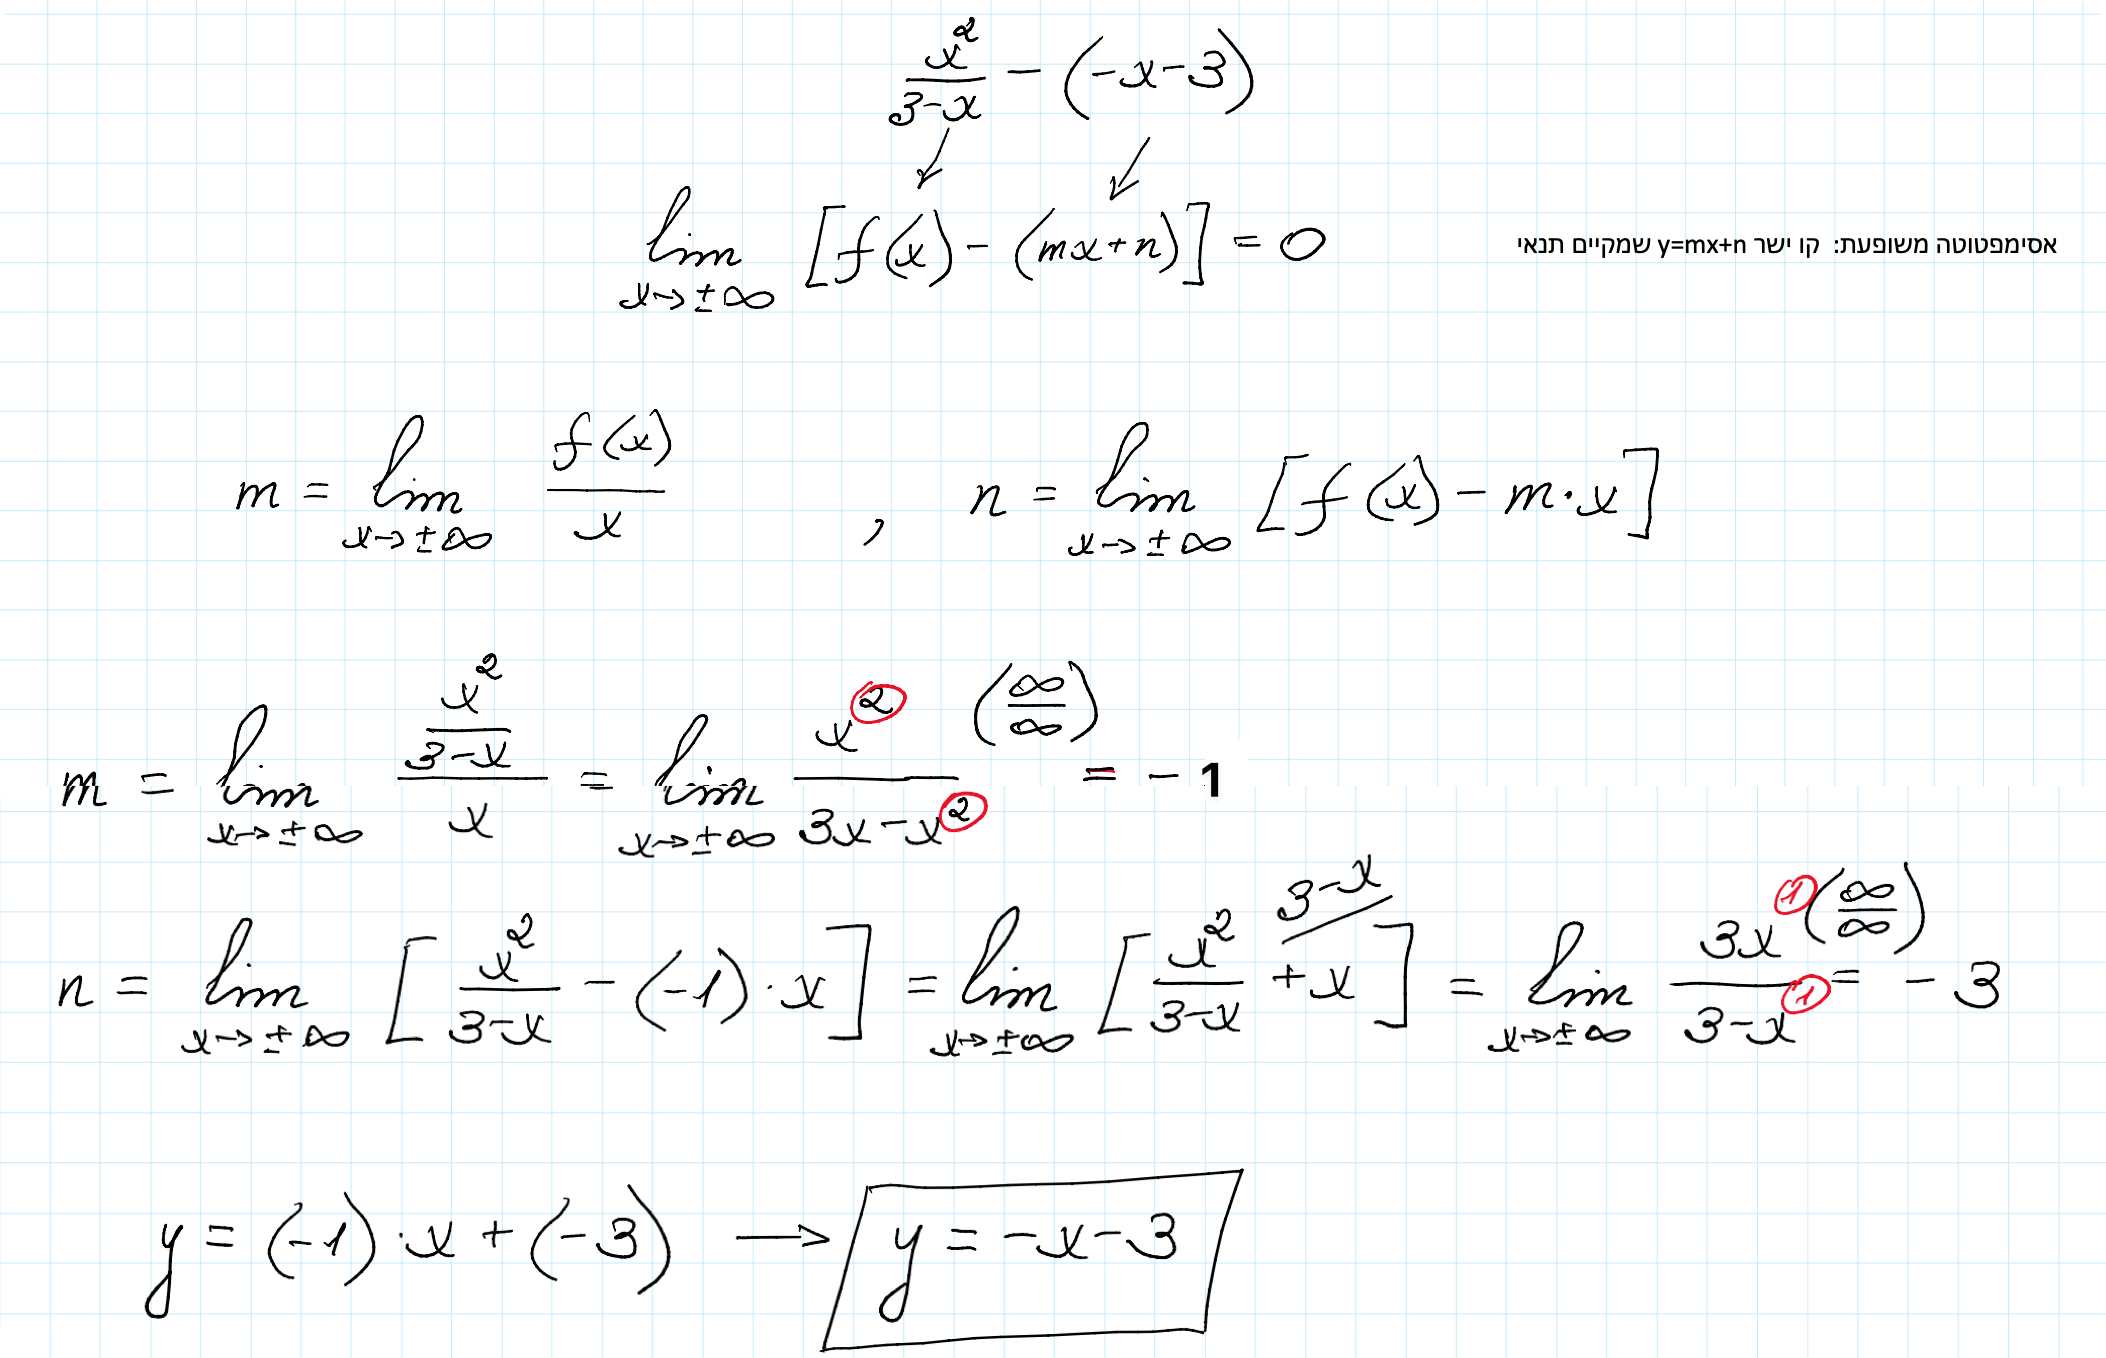 x²/(3-x) - (-x-3)
lim x→±∞ [f(x) - (mx+n)] = 0
אסימפטוטה משופעת: קו ישר y=mx+n שמקיים תנאי
m = lim x→±∞ f(x)/x , n = lim x→±∞ [f(x) - m·x]
m = lim x→±∞ (x²/(3-x))/x = lim x→±∞ x²/(3x-x²) (∞/∞) = -1
n = lim x→±∞ [x²/(3-x) - (-1)·x] = lim x→±∞ [x²/(3-x) + x] 3-x = lim x→±∞ 3x¹/(3-x¹) (∞/∞) = -3
y = (-1)·x + (-3) → y = -x-3